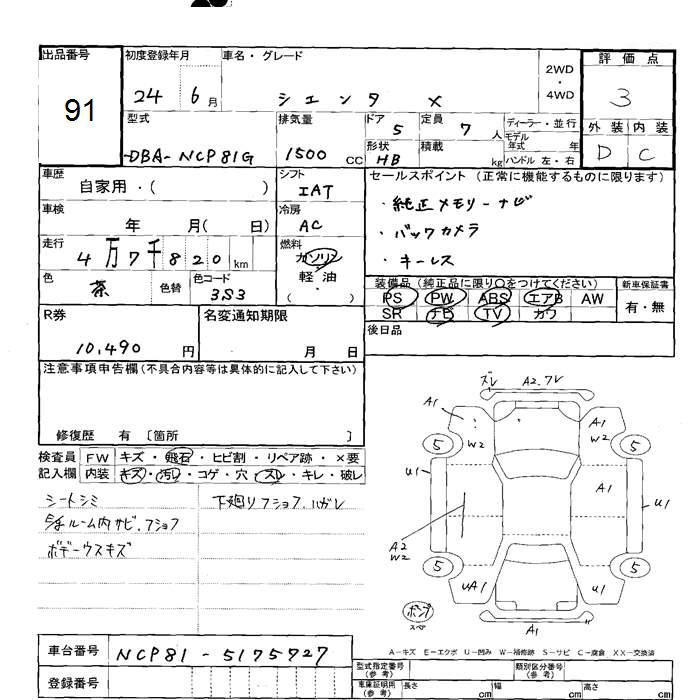 出品番号
91
初度登録年月
24 6月
車名・グレード
シエンタ X
2WD
・
4WD
評価点
3
外装 内装
D C
型式
-DBA-NCP81G
排気量
1500 CC
ドア 5
形状 HB
定員 7 人
積載 kg
ディーラー・並行
モデル年式 年
ハンドル 左・右
車歴
自家用・( )
シフト
IAT
車検
年 月( 日)
冷房
AC
走行
4万7千820km
燃料
ガソリン
軽油
( )
色
茶
色替
色コード
3S3
セールスポイント (正常に機能するものに限ります)
・純正メモリーナビ
・バックカメラ
・キーレス
装備品 (純正品に限り〇をつけてください)
PS PW ABS エアB AW
SR TV カワ
新車保証書
有・無
後日品
R券
10,490 円
名変通知期限
月 日
注意事項申告欄 (不具合内容等は具体的に記入して下さい)
修復歴 有 〔箇所 〕
検査員記入欄
FW キズ・飛石・ヒビ割・リペア跡・×要
内装 キズ・汚レ・コゲ・穴・スレ・キレ・破レ
シートシミ
下廻りフショク.ハガレ
ルーム内サビ.フショク
ボデーウスキズ
スレ A2.7V
A1 A1
W2 W2
5 5
U1 A1 U1
A2
W2
5 5
UA1 U1
A1
ポンプ
スペア
A-キズ E-エクボ U-凹み W-補修跡 S-サビ C-腐食 XX-交換済
車台番号
NCP81-5175727
登録番号
型式指定番号
(参考)
類別区分番号
(参考)
車庫証明用
(参考)
長さ cm 幅 cm 高さ cm